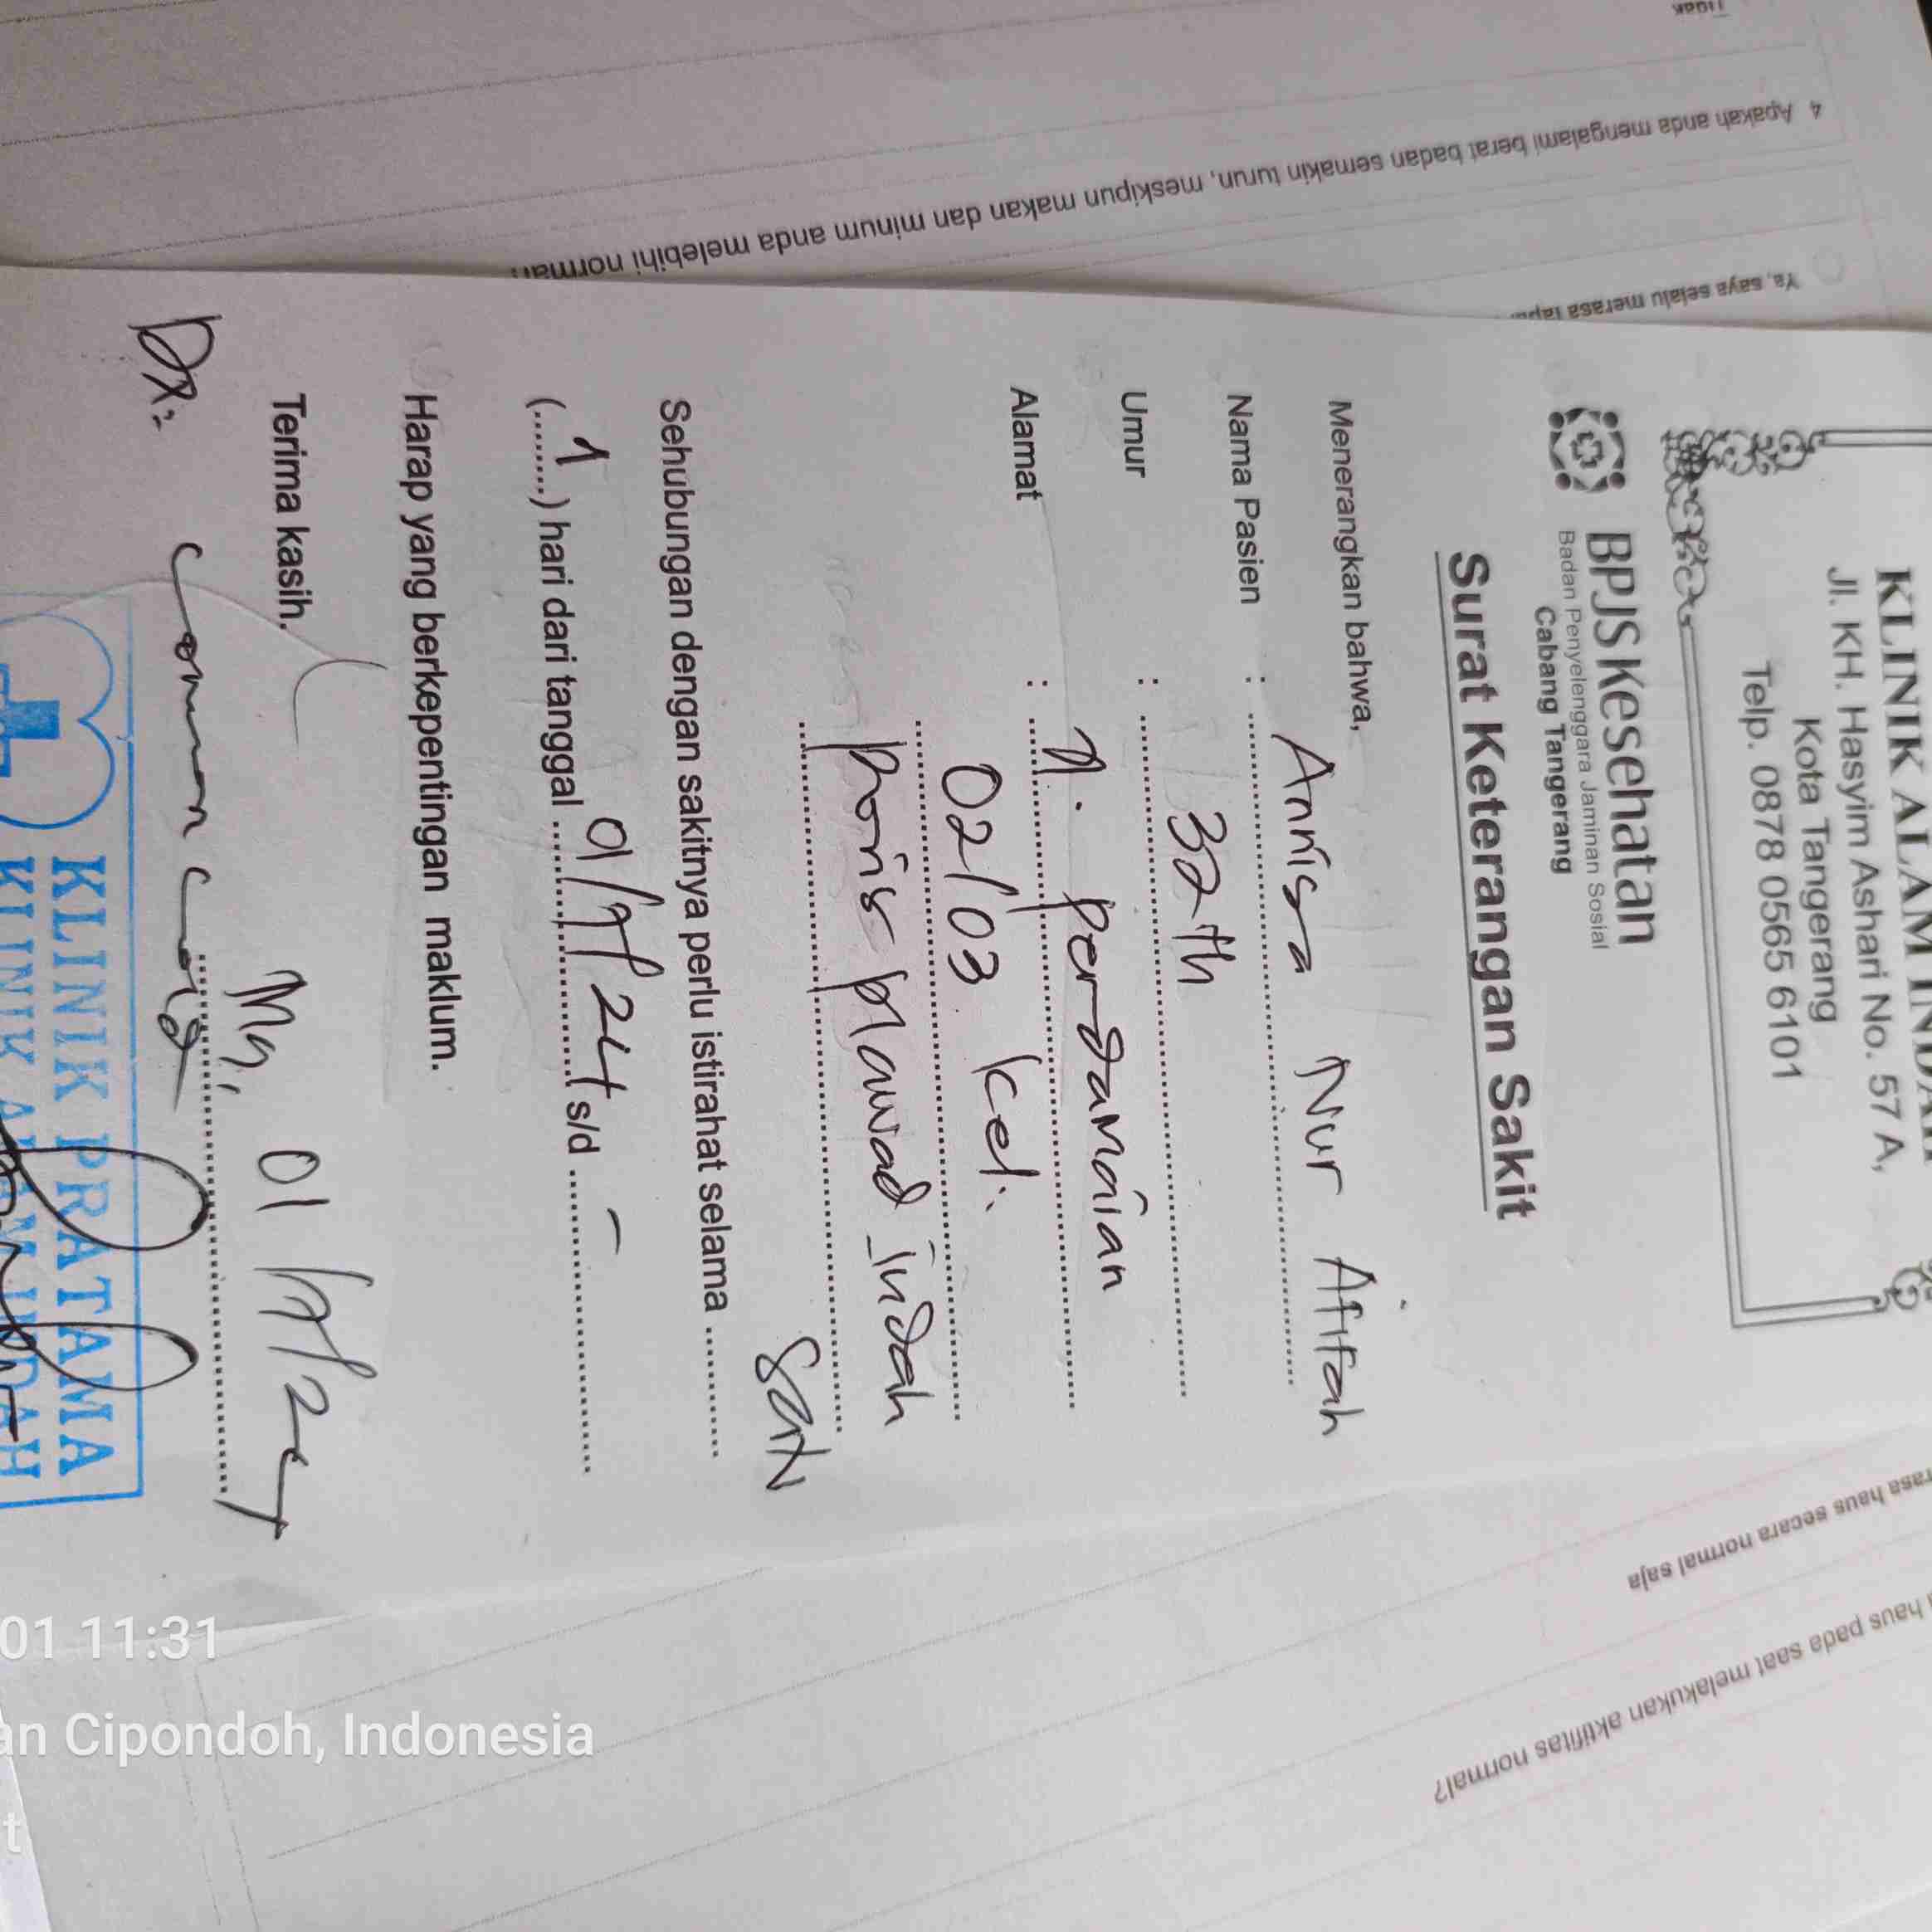 KLINIK ALAM INDAH
Jl. KH. Hasyim Ashari No. 57 A,
Kota Tangerang
Telp. 0878 0565 6101
BPJS Kesehatan
Badan Penyelenggara Jaminan Sosial
Cabang Tangerang
Surat Keterangan Sakit
Menerangkan bahwa,
Nama Pasien : Annisa Nur Afifah
Umur : 32 th
Alamat : Perdamaian
02/03 Kel.
Poris Plawad Indah
Sehubungan dengan sakitnya perlu istirahat selama Satu
(1) hari dari tanggal s/d -
Harap yang berkepentingan maklum.
Terima kasih.
Dx: Common Cold
KLINIK PRATAMA
KLINIK ALAM INDAH
Tidak
4 Apakah anda mengalami berat badan semakin turun, meskipun makan dan minum anda melebihi normal
Ya, saya selalu merasa
haus secara normal saja
haus pada saat melakukan aktifitas normal?
01 11:31
Cipondoh, Indonesia